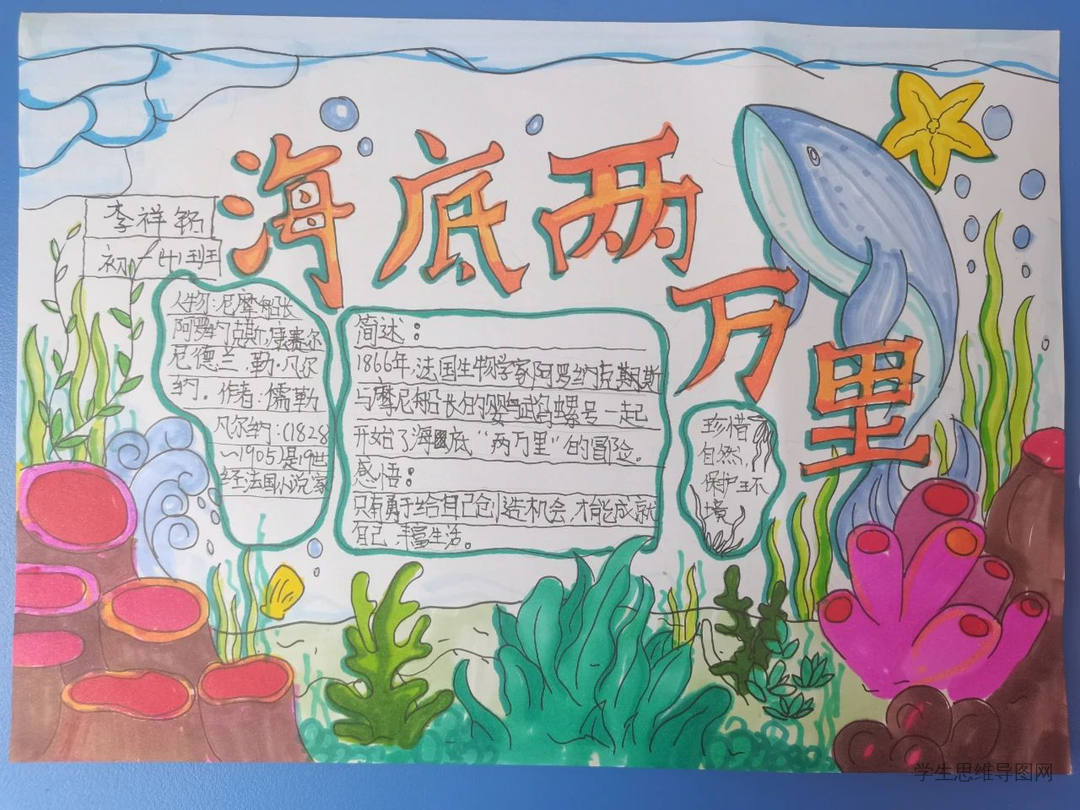 海底两万里
李祥
初一4班
人物:尼摩船长
阿罗约克斯,康赛尔
尼德兰.勒·凡尔
纳。作者:儒勒
凡尔纳:(1828
~1905)是19世
经法国小说家
简述:
1866年,法国生物学家阿罗约克斯
与摩尼船长的鹦鹉螺号一起
开始了海底“两万里”的冒险。
感悟:
只有勇于给自己创造机会,才能成就
自己,丰富生活。
珍惜
自然,
保护环
境
学生思维导图网